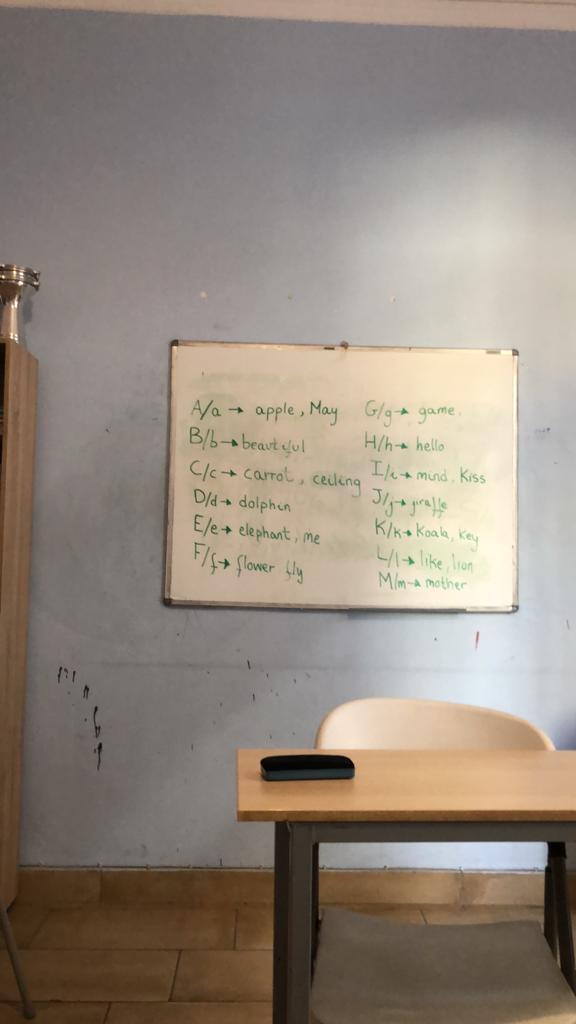 A/a → apple, May
B/b → beautiful
C/c → carrot, ceiling
D/d → dolphin
E/e → elephant, me
F/f → flower fly
G/g → game.
H/h → hello
I/i → mind, Kiss
J/j → jiraffe
K/k → Koala, key
L/l → like, lion
M/m → mother